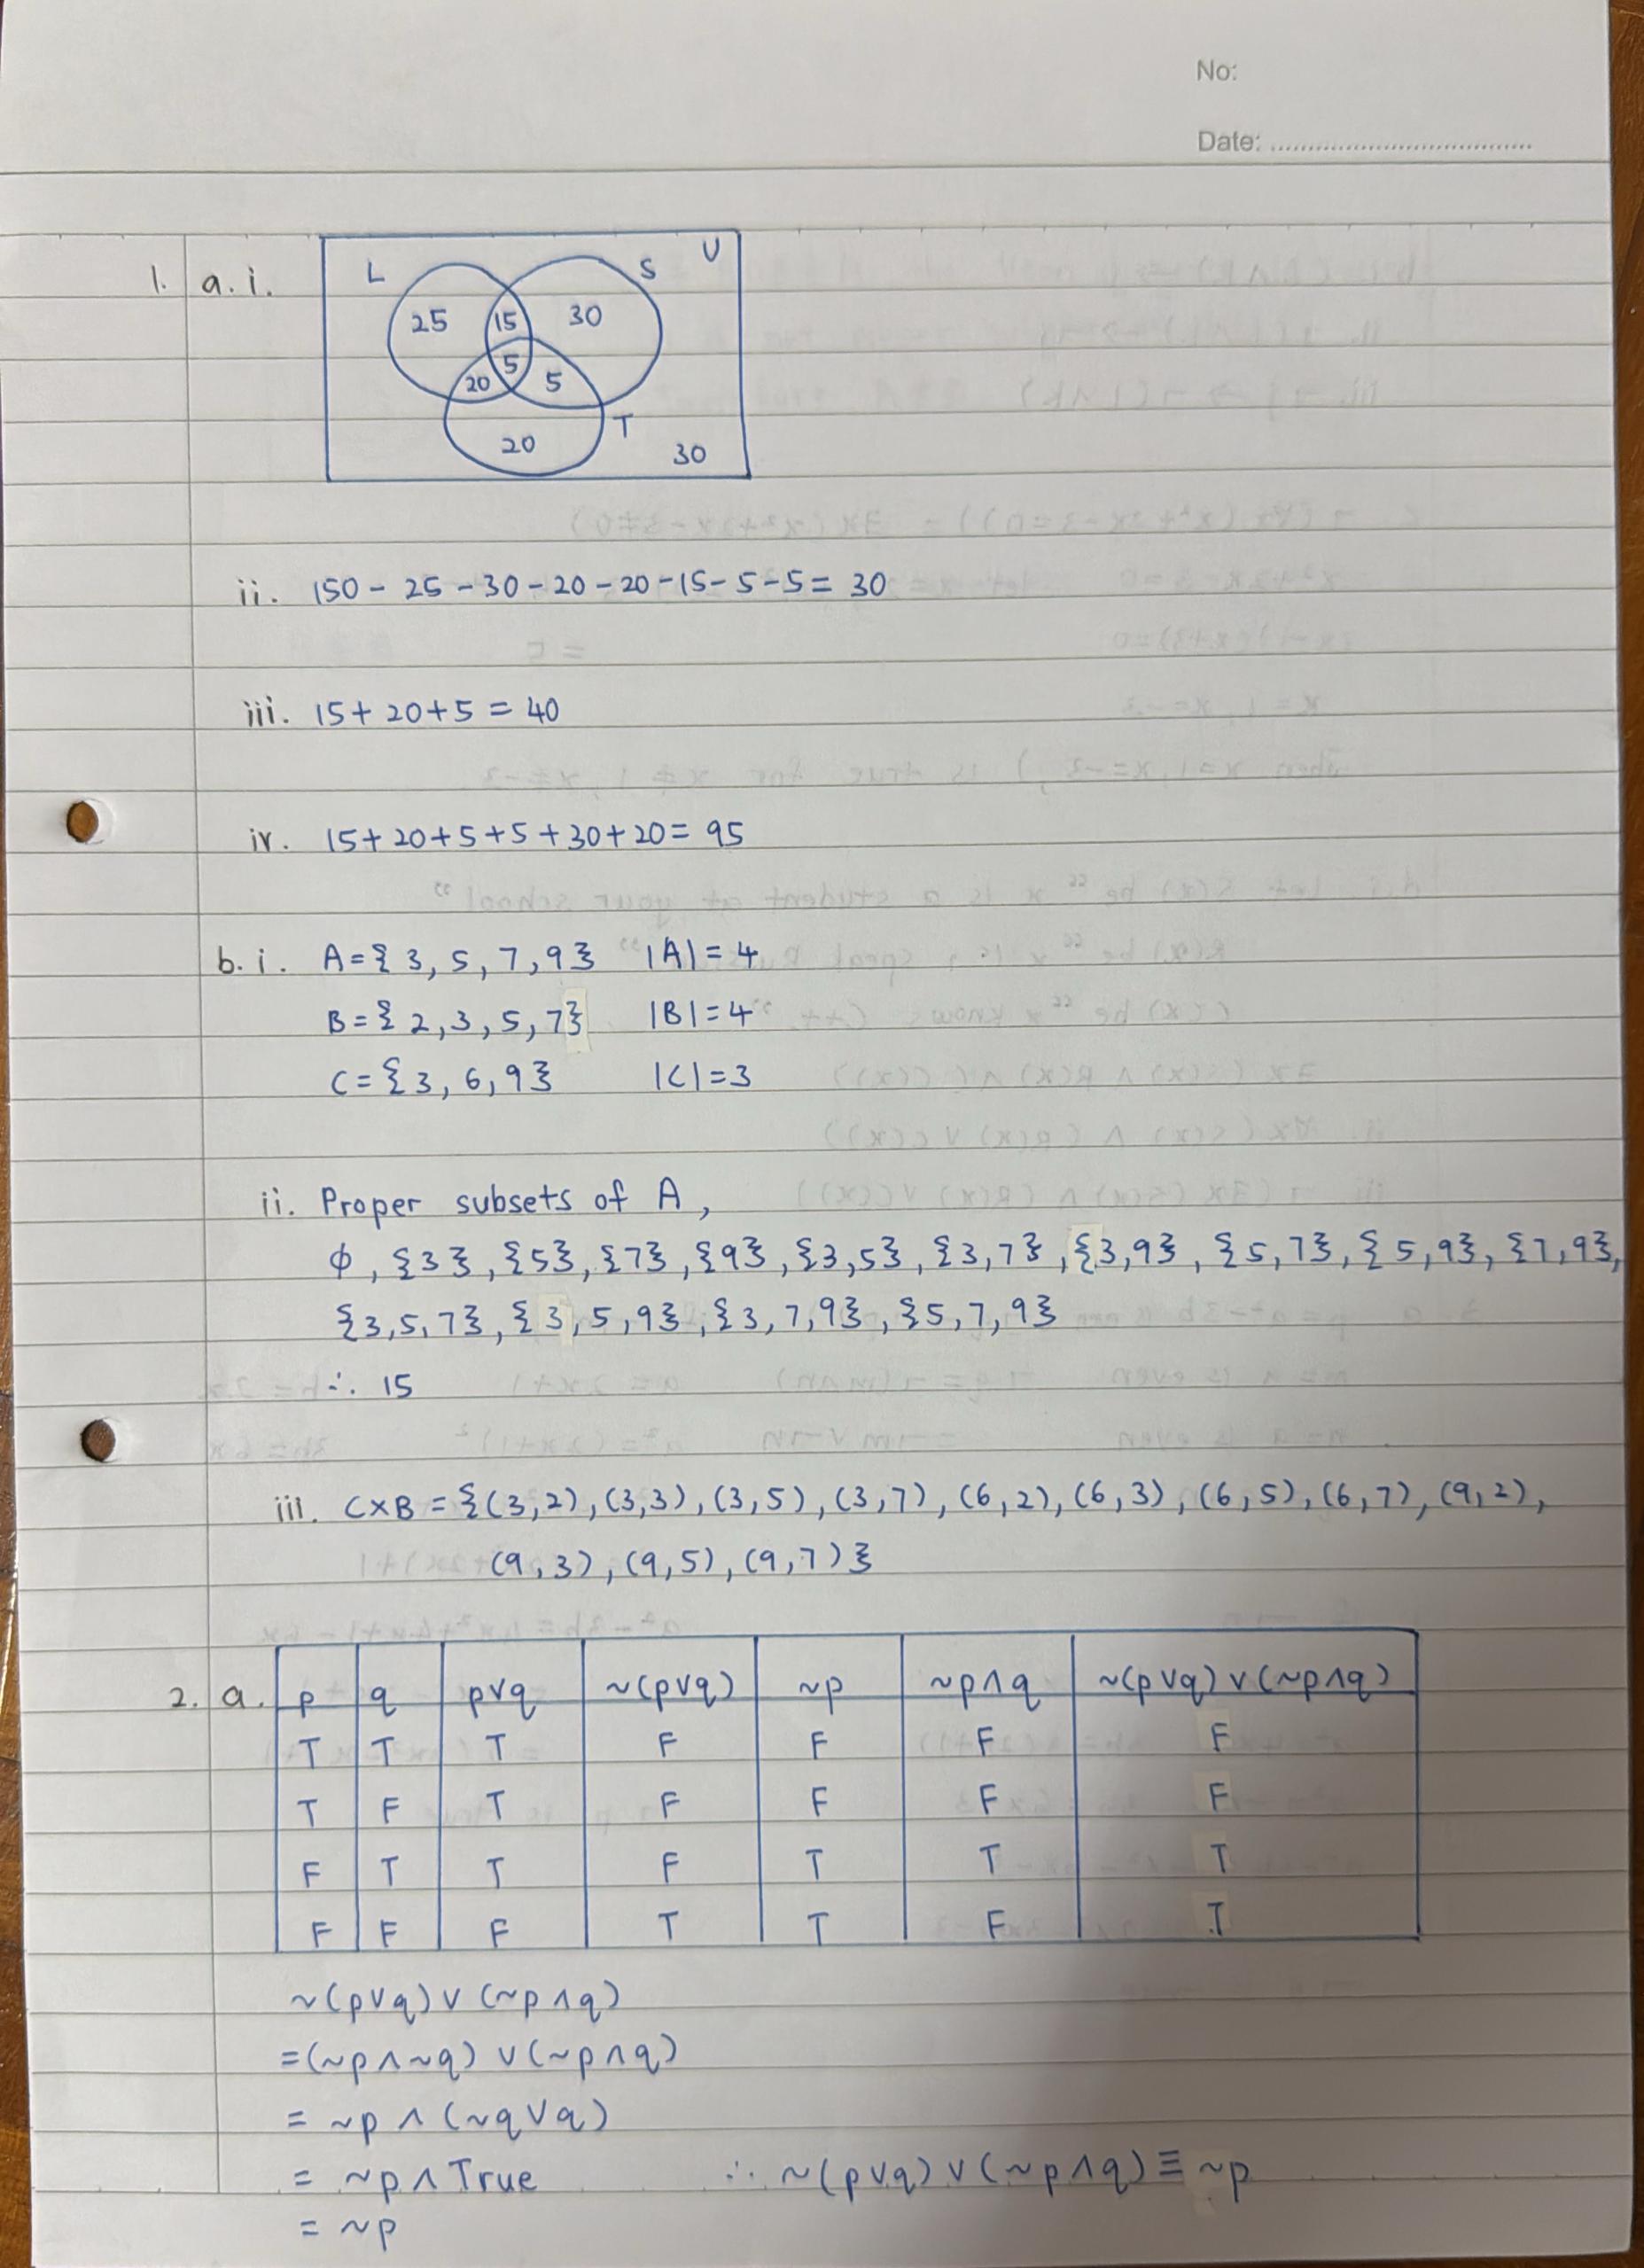 No:
Date: ....................................
1. a. i.
L S U
25 15 30
5
20 5
T
20 30
ii. 150 - 25 - 30 - 20 - 20 - 15 - 5 - 5 = 30
iii. 15 + 20 + 5 = 40
iv. 15 + 20 + 5 + 5 + 30 + 20 = 95
b. i. A = { 3, 5, 7, 9} |A| = 4
B = { 2, 3, 5, 7} |B| = 4
C = {3, 6, 9} |C| = 3
ii. Proper subsets of A,
ϕ, {3}, {5}, {7}, {9}, {3,5}, {3,7}, {3,9}, {5,7}, {5,9}, {7,9},
{3,5,7}, {3,5,9}, {3,7,9}, {5,7,9}
∴ 15
iii. C×B = {(3,2), (3,3), (3,5), (3,7), (6,2), (6,3), (6,5), (6,7), (9,2),
(9,3), (9,5), (9,7)}
2. a. p q p∨q ~(p∨q) ~p ~p∧q ~(p∨q) ∨ (~p∧q)
T T T F F F F
T F T F F F F
F T T F T T T
F F F T T F T
~(p∨q) ∨ (~p∧q)
= (~p∧~q) ∨ (~p∧q)
= ~p ∧ (~q∨q)
= ~p ∧ True ∴ ~(p∨q) ∨ (~p∧q) ≡ ~p
= ~p